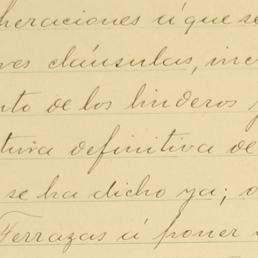 heraciones ú que se
ves cláusulas, inc
nto de los linderos y
tura definitiva de
se ha dicho ya; o
Terrazas á poner